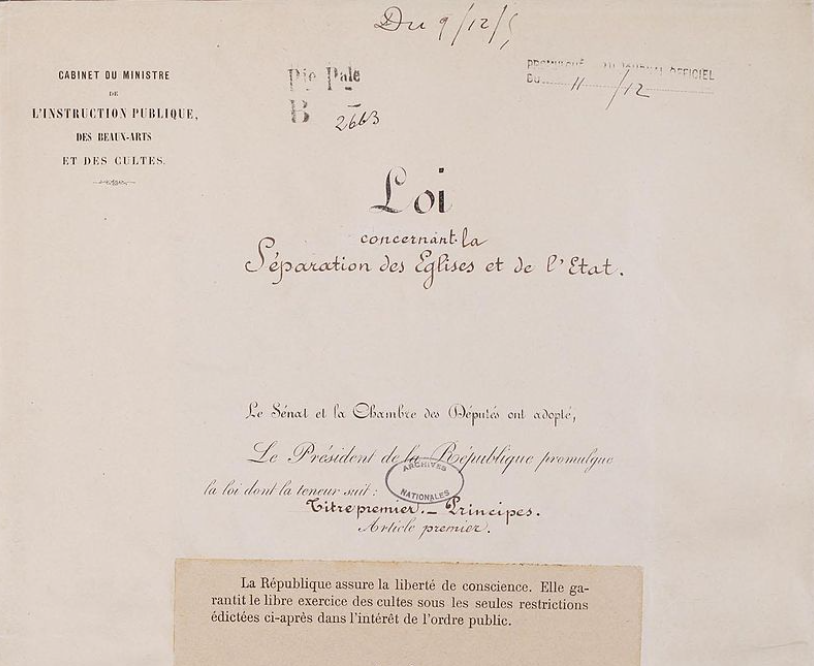 Du 9/12/5
CABINET DU MINISTRE
DE
L'INSTRUCTION PUBLIQUE,
DES BEAUX-ARTS
ET DES CULTES.
Pie Pale
B
2663
PROMULGUÉ AU JOURNAL OFFICIEL
DU 11/12
Loi
concernant la
Séparation des Eglises et de l'Etat.
Le Sénat et la Chambre des Députés ont adopté,
Le Président de la République promulgue
la loi dont la teneur suit :
ARCHIVES
NATIONALES
Titre premier. _ Principes.
Article premier.
La République assure la liberté de conscience. Elle ga-
rantit le libre exercice des cultes sous les seules restrictions
édictées ci-après dans l'intérêt de l'ordre public.